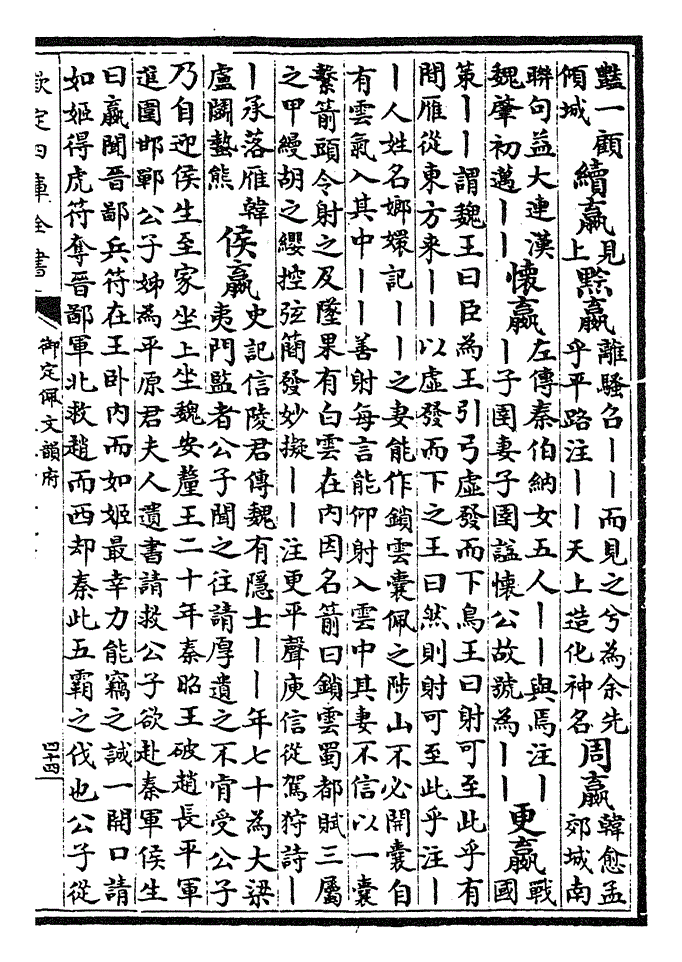 豔一顧
傾城
續嬴
見
上
黔嬴
離騷召丨丨而見之兮為余先
乎平路注丨丨天上造化神名
周嬴
韓愈孟
郊城南
聯句益大連漢
魏肇初邁丨丨
懷嬴
左傳秦伯納女五人丨丨與焉注丨
丨子圉妻子圉諡懷公故號為丨丨
更嬴
戰
國
策丨丨謂魏王曰臣為王引弓虛發而下鳥王曰射可至此乎有
間雁從東方來丨丨以虛發而下之王曰然則射可至此乎注丨
丨人姓名嫏嬛記丨丨之妻能作鎖雲囊佩之陟山不必開囊自
有雲氣入其中丨丨善射每言能仰射入雲中其妻不信以一囊
繫箭頭令射之及墜果有白雲在內因名箭曰鎖雲蜀都賦三屬
之甲縵胡之纓控弦簡發妙擬丨丨注更平聲庾信從駕狩詩丨
丨承落雁韓
盧鬬蟄熊
侯嬴
史記信陵君傳魏有隱士丨丨年七十為大梁
夷門監者公子聞之往請厚遺之不肯受公子
乃自迎侯生至家坐上坐魏安釐王二十年秦昭王破趙長平軍
進圍邯鄲公子姊為平原君夫人遺書請救公子欲赴秦軍侯生
曰嬴聞晉鄙兵符在王卧內而如姬最幸力能竊之誠一開口請
如姬得虎符奪晉鄙軍北救趙而西却秦此五霸之伐也公子從
欽定四庫全書
御定佩文韻府
四十四